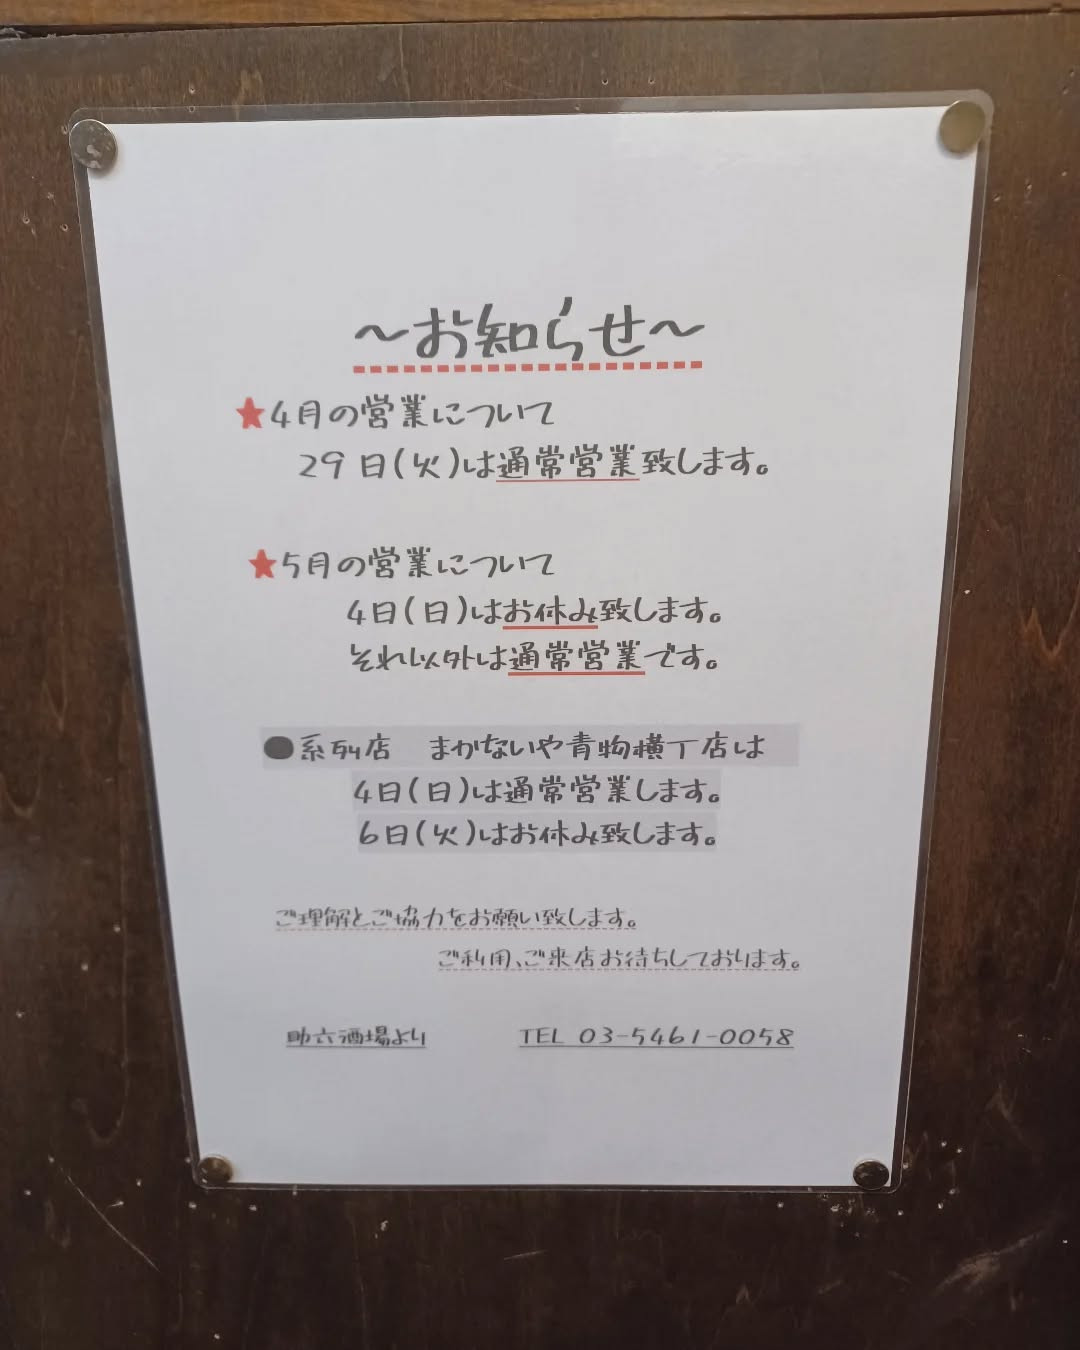 ～お知らせ～
★4月の営業について
29日(火)は通常営業致します。
★5月の営業について
4日(日)はお休み致します。
それ以外は通常営業です。
●系列店　まかないや青物横丁店は
4日(日)は通常営業します。
6日(火)はお休み致します。
ご理解とご協力をお願い致します。
ご利用、ご来店お待ちしております。
助六酒場より　TEL 03-5461-0058